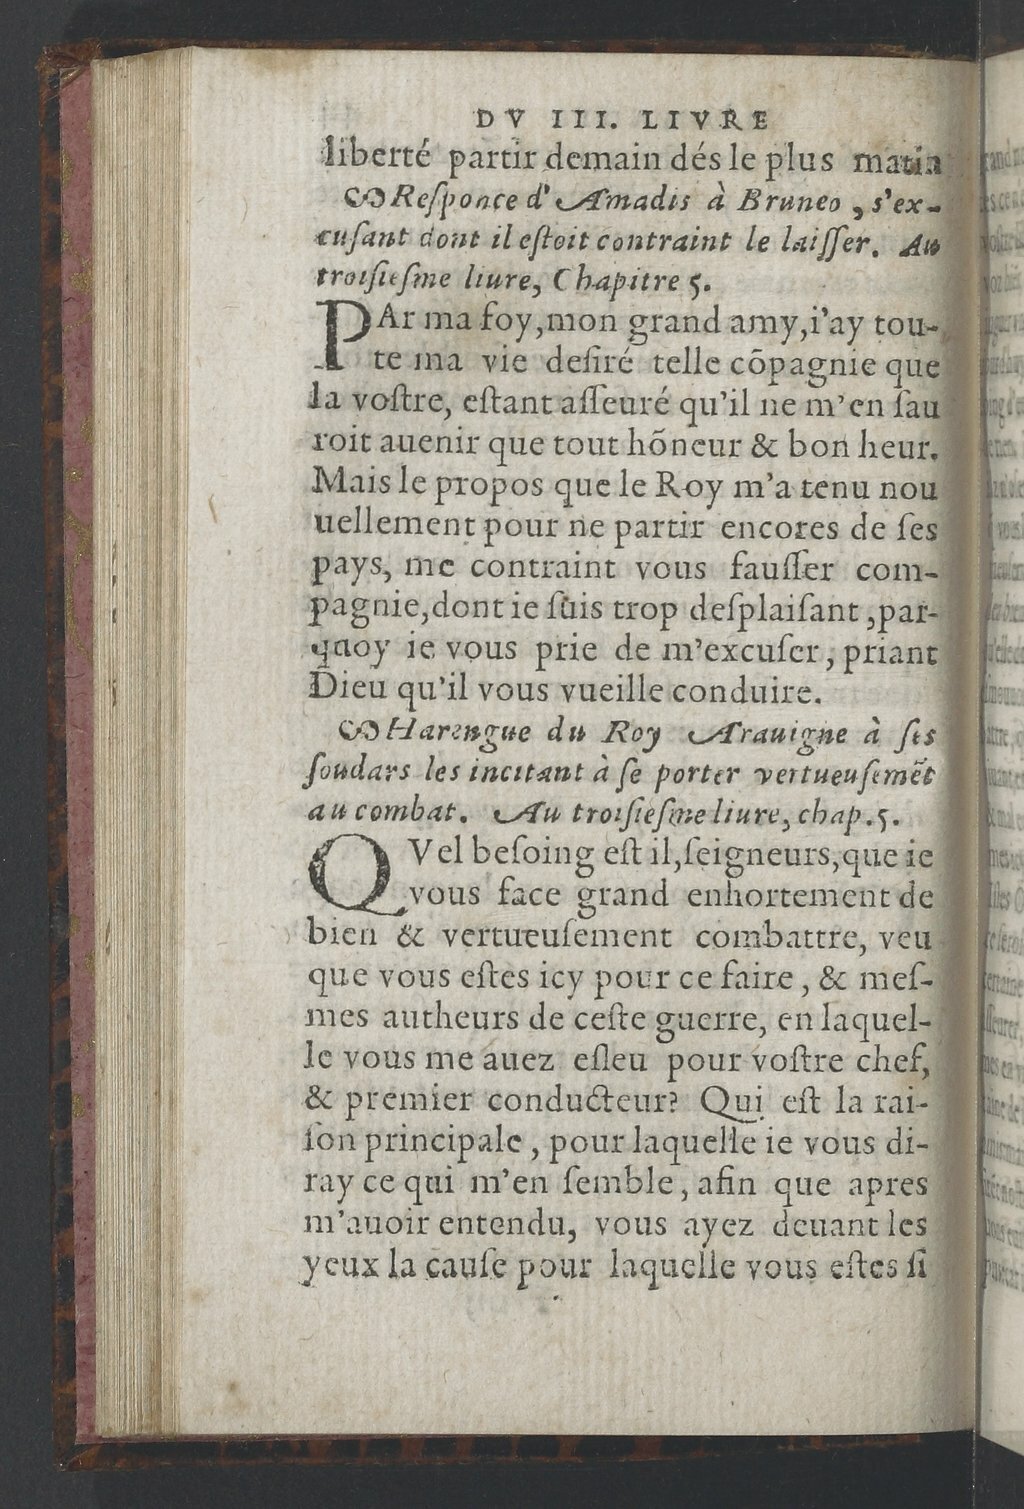 DV III. LIVRE
liberté partir demain dés le plus matin
Reſponce d'Amadis à Bruneo, s'ex-
cuſant dont il eſtoit contraint le laiſſer. Au
troiſieſme liure, Chapitre 5.
PAr ma foy, mon grand amy, i'ay tou-
te ma vie deſiré telle cõpagnie que
la voſtre, eſtant aſſeuré qu'il ne m'en ſau
roit auenir que tout hõneur & bon heur.
Mais le propos que le Roy m'a tenu nou
uellement pour ne partir encores de ſes
pays, me contraint vous fauſſer com-
pagnie, dont ie ſuis trop deſplaiſant, par-
quoy ie vous prie de m'excuſer, priant
Dieu qu'il vous vueille conduire.
Harengue du Roy Arauigne à ſes
ſoudars les incitant à ſe porter vertueuſemẽt
au combat. Au troiſieſme liure, chap. 5.
QVel beſoing eſt il, ſeigneurs, que ie
vous face grand enhortement de
bien & vertueuſement combattre, veu
que vous eſtes icy pour ce faire, & meſ-
mes autheurs de ceſte guerre, en laquel-
le vous me auez eſleu pour voſtre chef,
& premier conducteur? Qui eſt la rai-
ſon principale, pour laquelle ie vous di-
ray ce qui m'en ſemble, afin que apres
m'auoir entendu, vous ayez deuant les
yeux la cauſe pour laquelle vous eſtes ſi